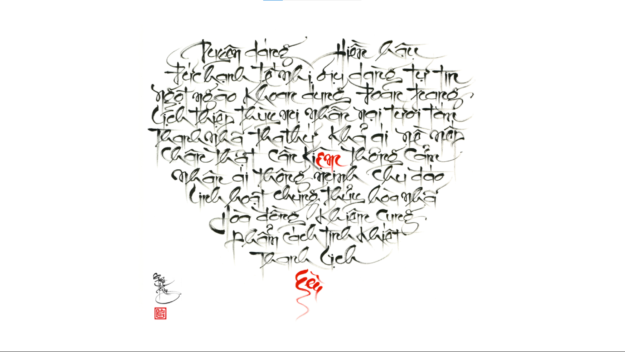 Duyên dáng Hiền hậu
Đức hạnh Tế nhị Dịu dàng Tự tin
Ngọt ngào Khoan dung Đoan trang
Lịch thiệp Thức Nhẫn nại Tươi tắn
Thanh nhã Tha thứ Khả ái
Chân thật cần Kiệm Thông cảm
Nhân ái Thông minh Chu đáo
Linh hoạt chung Thủy hòa nhã
đồng Khiêm cung
Phẩm cách tinh khiết
Thanh lịch